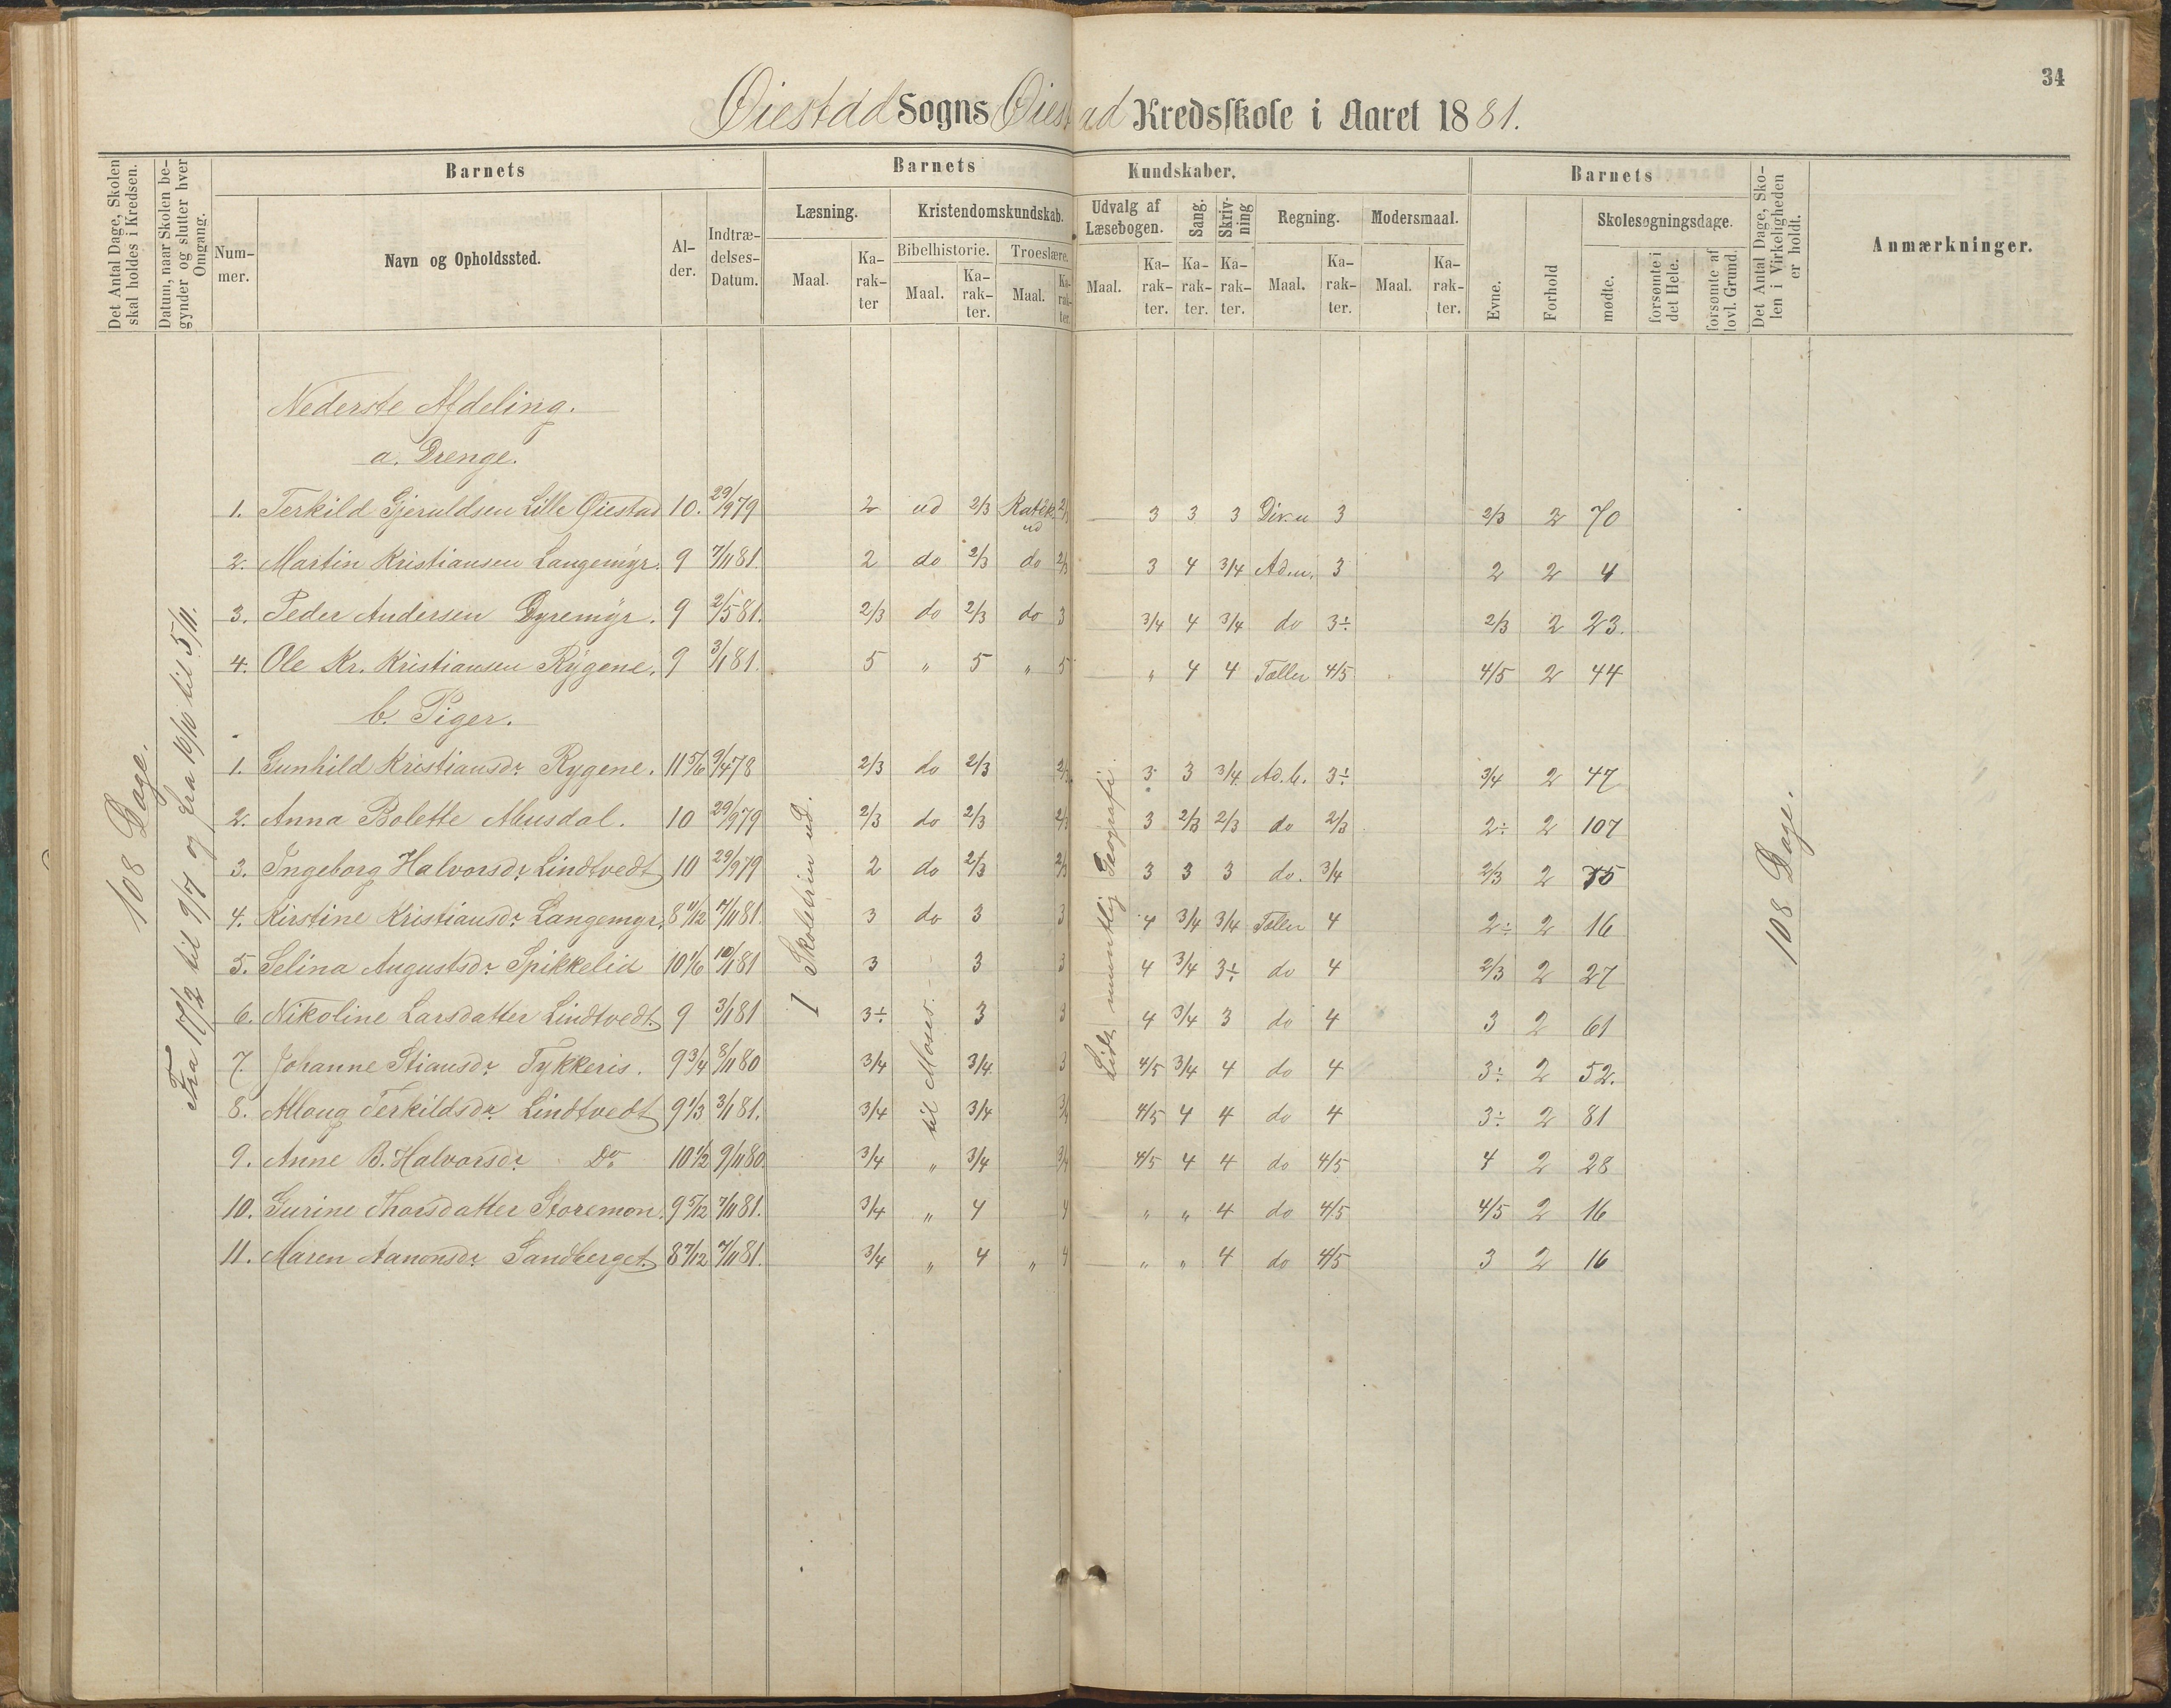 34
Øiestad Sogns Øiestad Kredsskole i Aaret 1881.
Det Antal Dage, Skolen skal holdes i Kredsen.
Datum, naar Skolen begynder og slutter hver Omgang.
Barnets
Barnets Kundskaber.
Barnets
Det Antal Dage, Skolen i Virkeligheden er holdt.
Anmærkninger.
Nummer.
Navn og Opholdssted.
Alder.
Indtrædelses-Datum.
Læsning.
Kristendomskundskab.
Udvalg af Læsebogen.
Sang.
Skrivning
Regning.
Modersmaal.
Evne.
Forhold
Skolesøgningsdage.
Bibelhistorie.
Troeslære.
Maal.
Karakter
Maal.
Karakter.
Maal.
Karakter.
Maal.
Karakter.
Karakter.
Karakter.
Maal.
Karakter.
Maal.
Karakter.
mødte.
forsømte i det Hele.
forsømte af lovl. Grund.
108 Dage.
Fra 17/2 til 9/7 og fra 10/10 til 5/11.
I Skoletrin ud.
til Moses.
Lidt mundtlig Geografi.
108 Dage.
Nederste Afdeling.
a. Drenge.
1. Terkild Gjeruldsen Lille Øiestad 10. 29/9 79 2 ud 2/3 Katek. ud 2/3 3 3 3 Div. u 3 2/3 2 70
2. Martin Kristiansen Langemyr. 9 7/11 81. 2 do 2/3 do 2/3 3 4 3/4 Ad.u. 3 2 2 4
3. Peder Andersen Dyremyr. 9 2/5 81. 2/3 do 2/3 do 3 3/4 4 3/4 do 3÷ 2/3 2 23.
4. Ole Kr. Kristiansen Rygene. 9 3/1 81. 5 " 5 " 5 " 4 4 Tæller 4/5 4/5 2 44
b. Piger.
1. Gunhild Kristiansdr. Rygene. 11 5/6 9/4 78 2/3 do 2/3 2/3 3 3 3/4 Ad. b. 3÷ 3/4 2 47
2. Anna Bolette Musdal. 10 29/9 79 2/3 do 2/3 2/3 3 2/3 2/3 do 2/3 2÷ 2 107
3. Ingeborg Halvorsdr. Lindtvedt 10 29/9 79 2 do 2/3 2/3 3 3 3 do. 3/4 2/3 2 75
4. Kirstine Kristiansdr. Langemyr. 8 11/12 7/11 81. 3 do 3 3 4 3/4 3/4 Tæller 4 2÷ 2 16
5. Selina Augustsdr. Spikkelid 10 1/6 10/1 81 3 3 3 4 3/4 3÷ do 4 2/3 2 27
6. Nikoline Larsdatter Lindtvedt. 9 3/1 81 3÷ 3 3 4 3/4 3 do 4 3 2 61
7. Johanne Stiansdr. Tykkeris. 9 3/4 8/11 80 3/4 3/4 3 4/5 3/4 4 do 4 3÷ 2 52.
8. Aslaug Terkildsdr. Lindtvedt 9 1/3 3/1 81. 3/4 3/4 3/4 4/5 4 4 do 4 3÷ 2 81
9. Anne B. Halvorsdr. Do. 10 1/2 9/11 80. 3/4 " 3/4 3/4 4/5 4 4 do 4/5 4 2 28
10. Gurine Thorsdatter Storemon. 9 5/12 7/11 81. 3/4 " 4 4 " " 4 do 4/5 4/5 2 16
11. Maren Aanonsdr. Sandberget 8 7/12 7/11 81. 3/4 " 4 " 4 " " 4 do 4/5 3 2 16